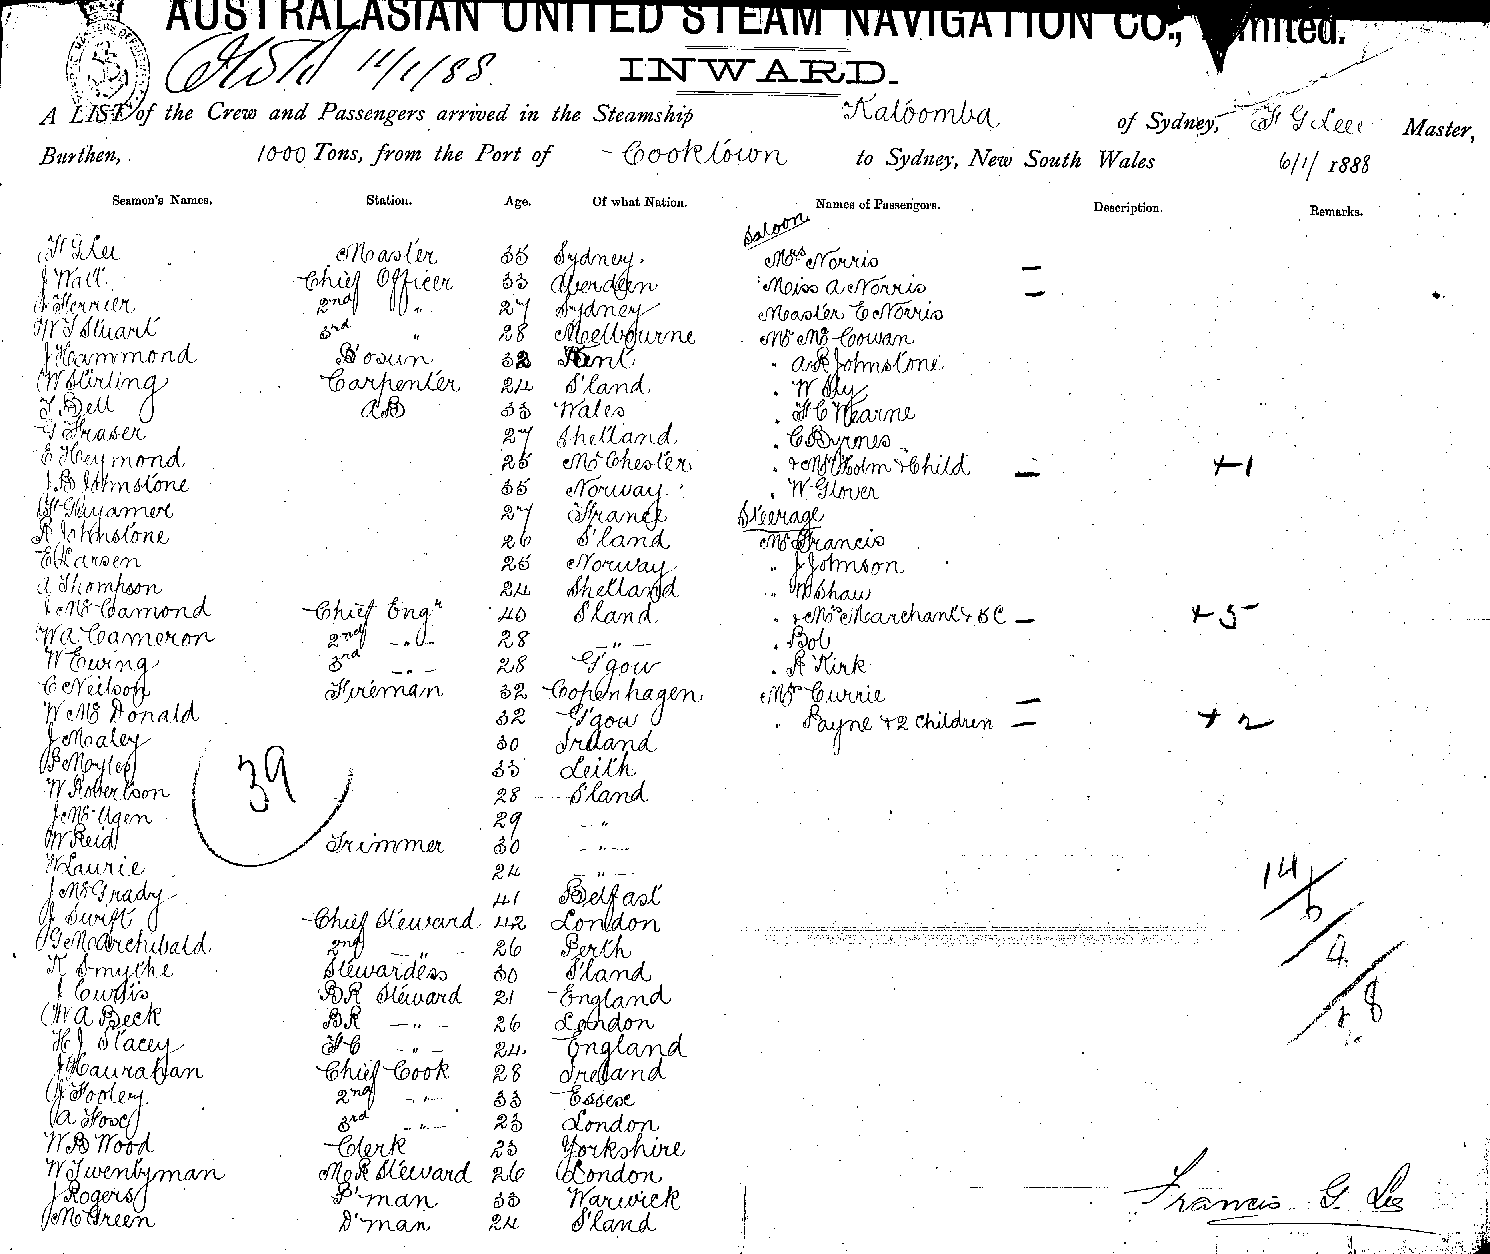 AUSTRALASIAN UNITED STEAM NAVIGATION CO., Limited.
11/1/88
INWARD.
A LIST of the Crew and Passengers arrived in the Steamship Katoomba of Sydney, F G Lee Master,
Burthen, 1000 Tons, from the Port of Cooktown to Sydney, New South Wales 6/1/ 1888
Seamen's Names. Station. Age. Of what Nation. Names of Passengers. Description. Remarks.
Saloon
F G Lee Master 35 Sydney. Mrs Norris —
J Watt Chief Officer 33 Aberdeen Miss A Norris —
Ferrier 2nd " 27 Sydney Master E Norris
W T Stuart 3rd " 28 Melbourne Mr McCowan
J Hammond Bosun 32 Kent " A R Johnstone
W Stirling Carpenter 24 S'land " W Sly
T Bell AB 33 Wales " F C Wearne
G Fraser 27 Shetland " C Byrnes
E Heymond 25 McChester " + Mrs Holm + Child — +1
J B Johnstone 35 Norway " W Glover
27 France Steerage
R Johnstone 26 S'land Mr Francis
E Larsen 25 Norway " J Johnson
A Thompson 24 Shetland " W Shaw
J McCamond Chief Engr 40 S'land " + Mrs Marchant + 5 C — +5
W A Cameron 2nd -"- 28 -"- " Bob
W Ewing 3rd -"- 28 G'gow " R Kirk
C Neilson Fireman 32 Copenhagen Mrs Currie —
W McDonald 32 G'gow " Payne + 2 Children — +2
J Maley 30 Ireland
33 Leith
W Robertson 28 S'land
39
J McUgen 29 -"-
W Reid Trimmer 30 -"-
W Laurie 24 -"-
J McGrady 41 Belfast
14/6/4/28
J Swift Chief Steward 42 London
G M Archibald 2nd -"- 26 Perth
K Smythe Stewardess 30 S'land
J Curtis BR Steward 21 England
W A Beck BR -"- 26 London
H J Stacey FC -"- 24 England
J Haurahan Chief Cook 28 Ireland
2nd -"- 33 Essex
A Foxe 3rd -"- 23 London
W B Wood Clerk 23 Yorkshire
W Twentyman M R Steward 26 London
J Rogers P'man 33 Warwick
J McGreen D'man 24 S'land
Francis G. Lee